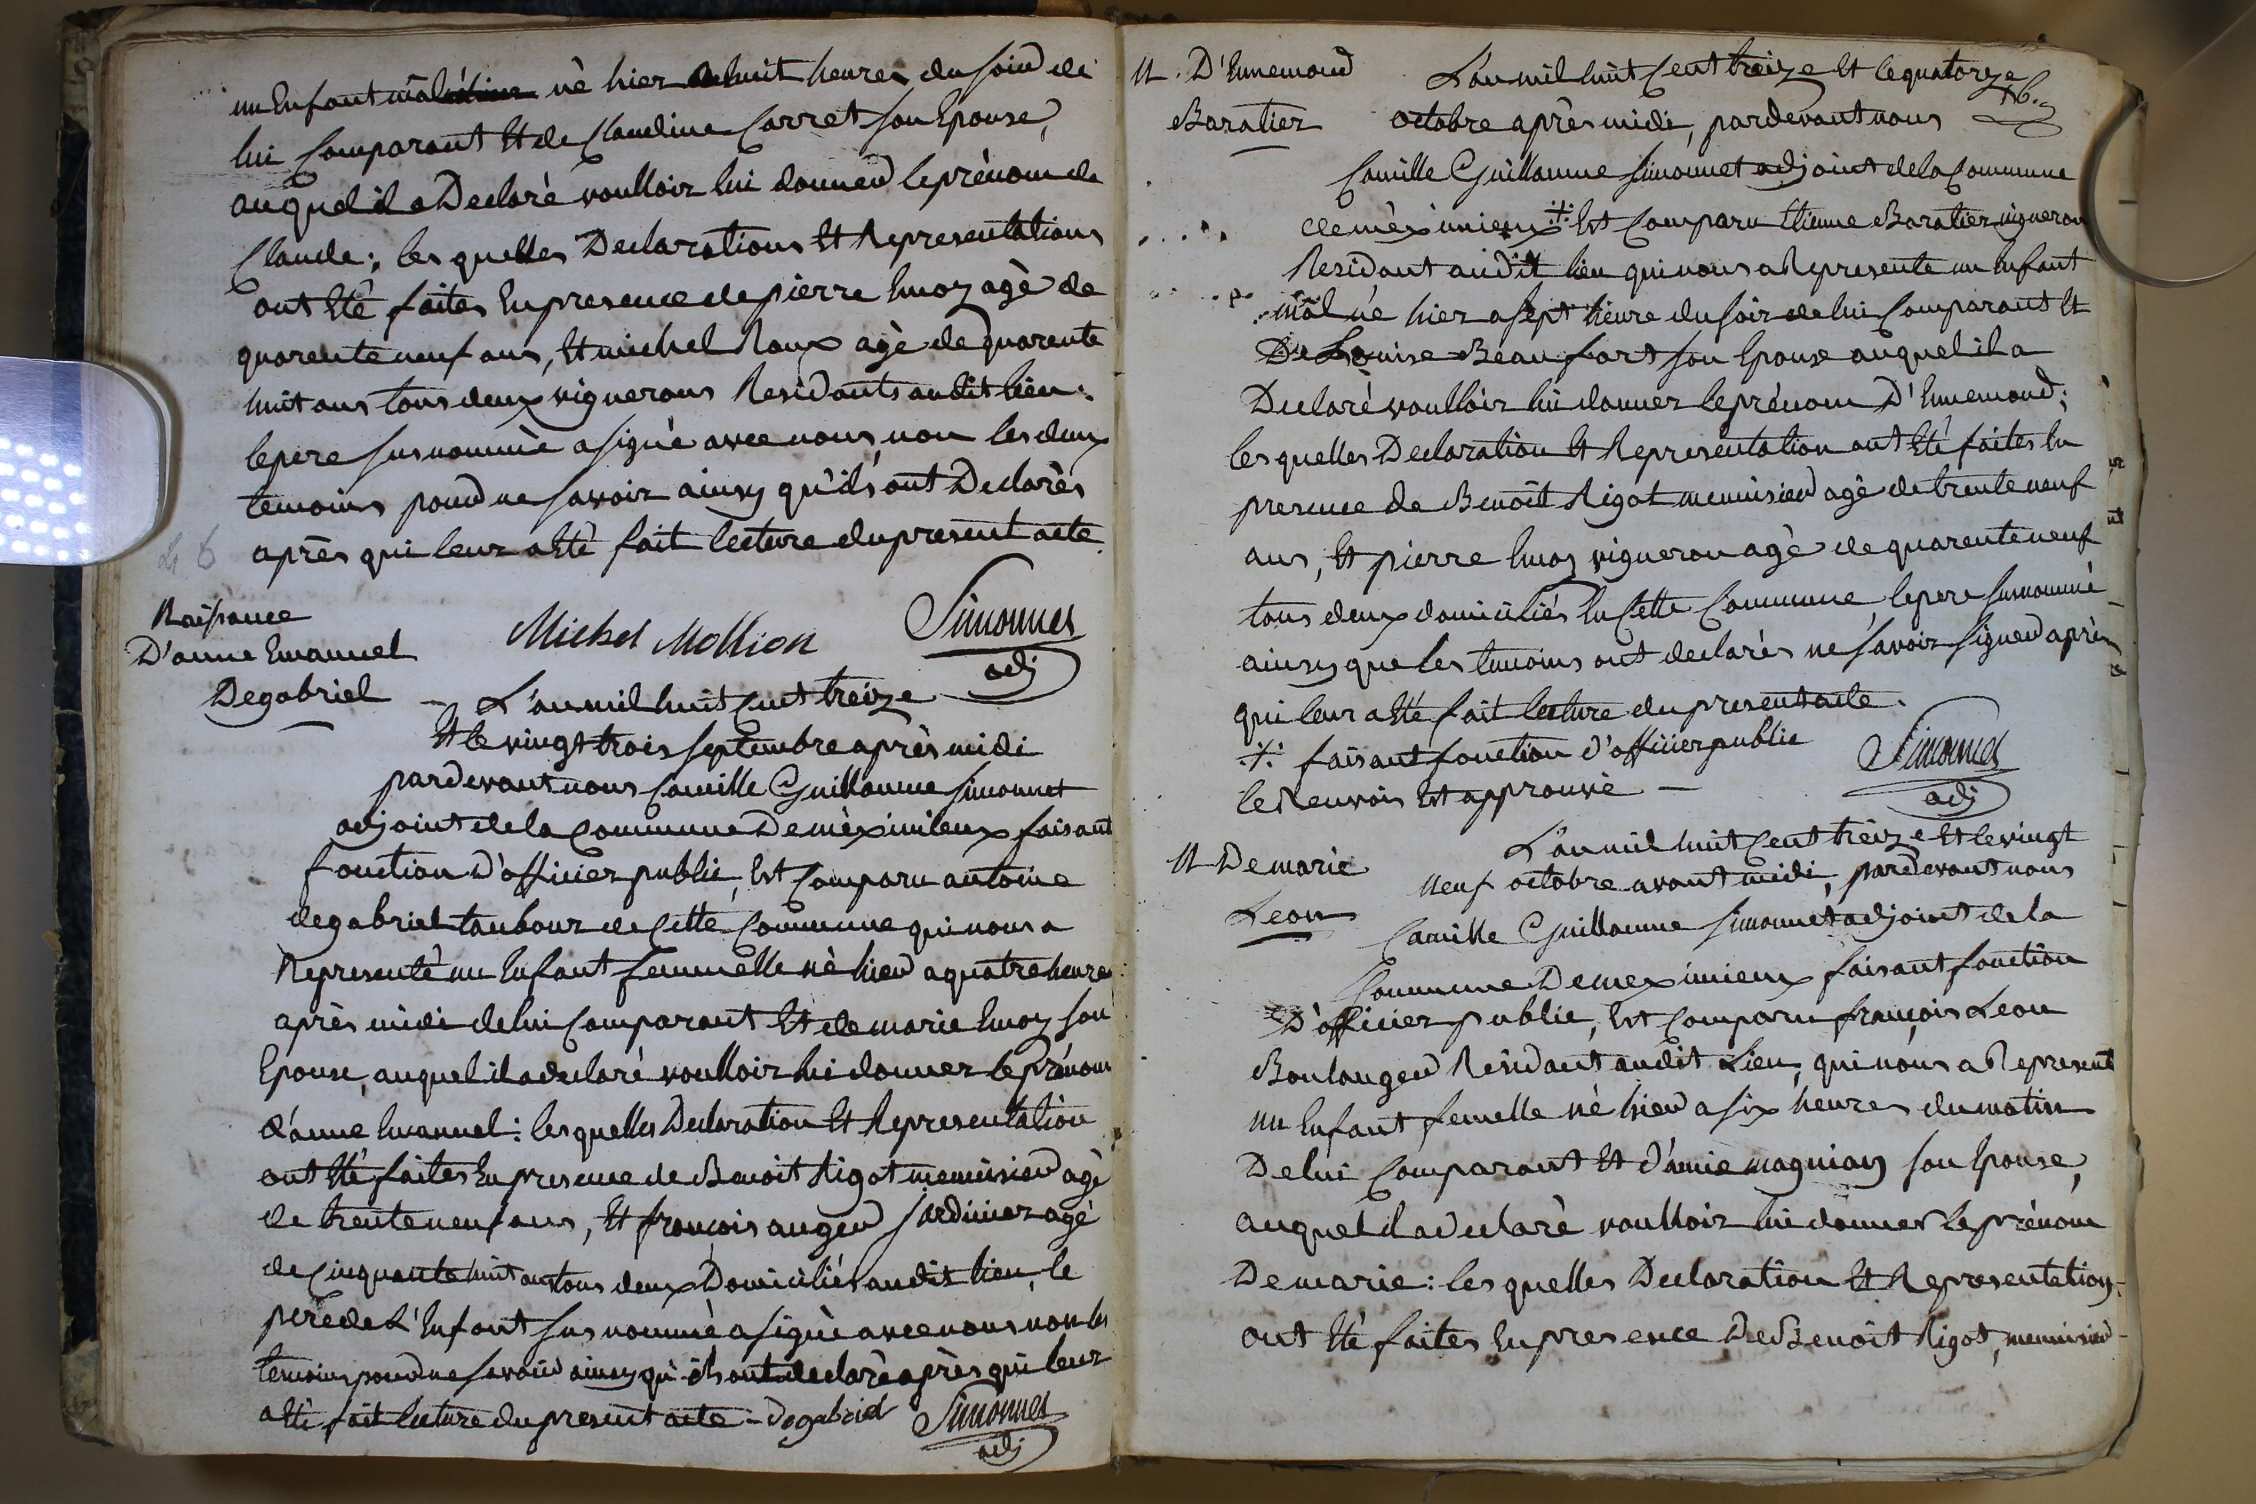 un Enfant mâl né hier a huit heures du soir de
lui Comparant Et de Claudine Carret son Epouse,
auquel il a Declaré voulloir lui donner le prénom de
Claude; les quelles Declarations Et Representations
ont Eté faites En presence de pierre Emoz agé de
quarente neuf ans, Et michel Roux agé de quarente
huit ans tous deux vignerons Residants audit lieu.
le pere susnommé a signé avec nous, non les deux
temoins pour ne savoir ainsy qu'ils ont Declarés
après qui leur a Eté fait lecture du present acte
Michel Mollion
Simonnet
adj
Naissance
D'anne Emanuel
Degabriel
L'an mil huit Cent treize
Et le vingt trois septembre après midi
pardevant nous Camille Guillaume Simonnet
adjoint de la Commune De mèximieux faisant
fonction D'officier public, Est Comparu antoine
degabriel tanbour de Cette Commune qui nous a
Representé un Enfant femmelle né hier a quatre heures
après midi de lui Comparant Et de marie Emoz son
Epouse, auquel il a declaré voulloir lui donner le prénom
d'anne Emanuel: les quelles Declaration Et Representation
ont Eté faites En presence de Benoit Rigot menuisier agé
de trente neuf ans, Et françois auger jardinier agé
de Cinquante huit ans tous deux Domiciliés audit lieu, le
pere de L'Enfant sus nommé a signé avec nous non les
temoins pour ne savoir ainsy qu'ils ont declaré après qui leur
a Eté fait lecture du present acte - Degabriel
Simonnet
adj
N D'Ennemond
Baratier
L'an mil huit Cent treize Et le quatorze
octobre après midi, pardevant nous
Camille Guillaume Simonnet adjoint de la Commune
de mèximieux ·/· Est Comparu Etienne Baratier vigneron
Residant audit lieu qui nous a Representé un Enfant
mâl né hier a sept heure du soir de lui Comparant Et
De Louise Beaufort son Epouse auquel il a
Declaré voulloir lui donner le prénom D'Ennemond;
les quelles Declaration Et Representation ont Eté faites En
presence de Benoît Rigot menuisier agé de trente neuf
ans, Et pierre Emoz vigneron agé de quarente neuf
tous deux domiciliés En Cette Commune, le pere susnommé
ainsy que les temoins ont declarés ne savoir signer après
qui leur a Eté fait lecture du present acte.
·/· faisant fonction d'officier public
le Renvois Est approuvé —
Simonnet
adj
N De marie
Leon
L'an mil huit Cent treize Et le vingt
neuf octobre avant midi, pardevant nous
Camille Guillaume Simonnet adjoint de la
Commune De meximieux faisant fonction
D'officier public, Est Comparu françois Leon
Boulanger Residant audit Lieu, qui nous a Represent
un Enfant femelle né hier a six heures du matin
De lui Comparant Et d'amie magnian son Epouse,
auquel il a declaré voulloir lui donner le prénom
De marie: les quelles Declaration Et Representation
ont Eté faites En presence De Benoît Rigot, menuisier